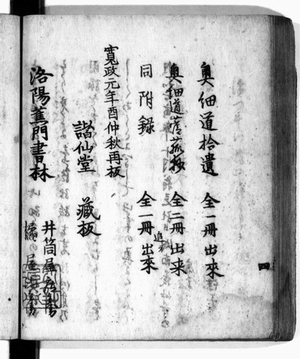 奥細道拾遺 全一冊出来
奥細道菅菰抄 全二冊出来
同附録 全一冊 近 出来
寛政元年酉仲秋再板
諧仙堂 蔵板
洛陽蕉門書林
井筒屋
橘屋
四